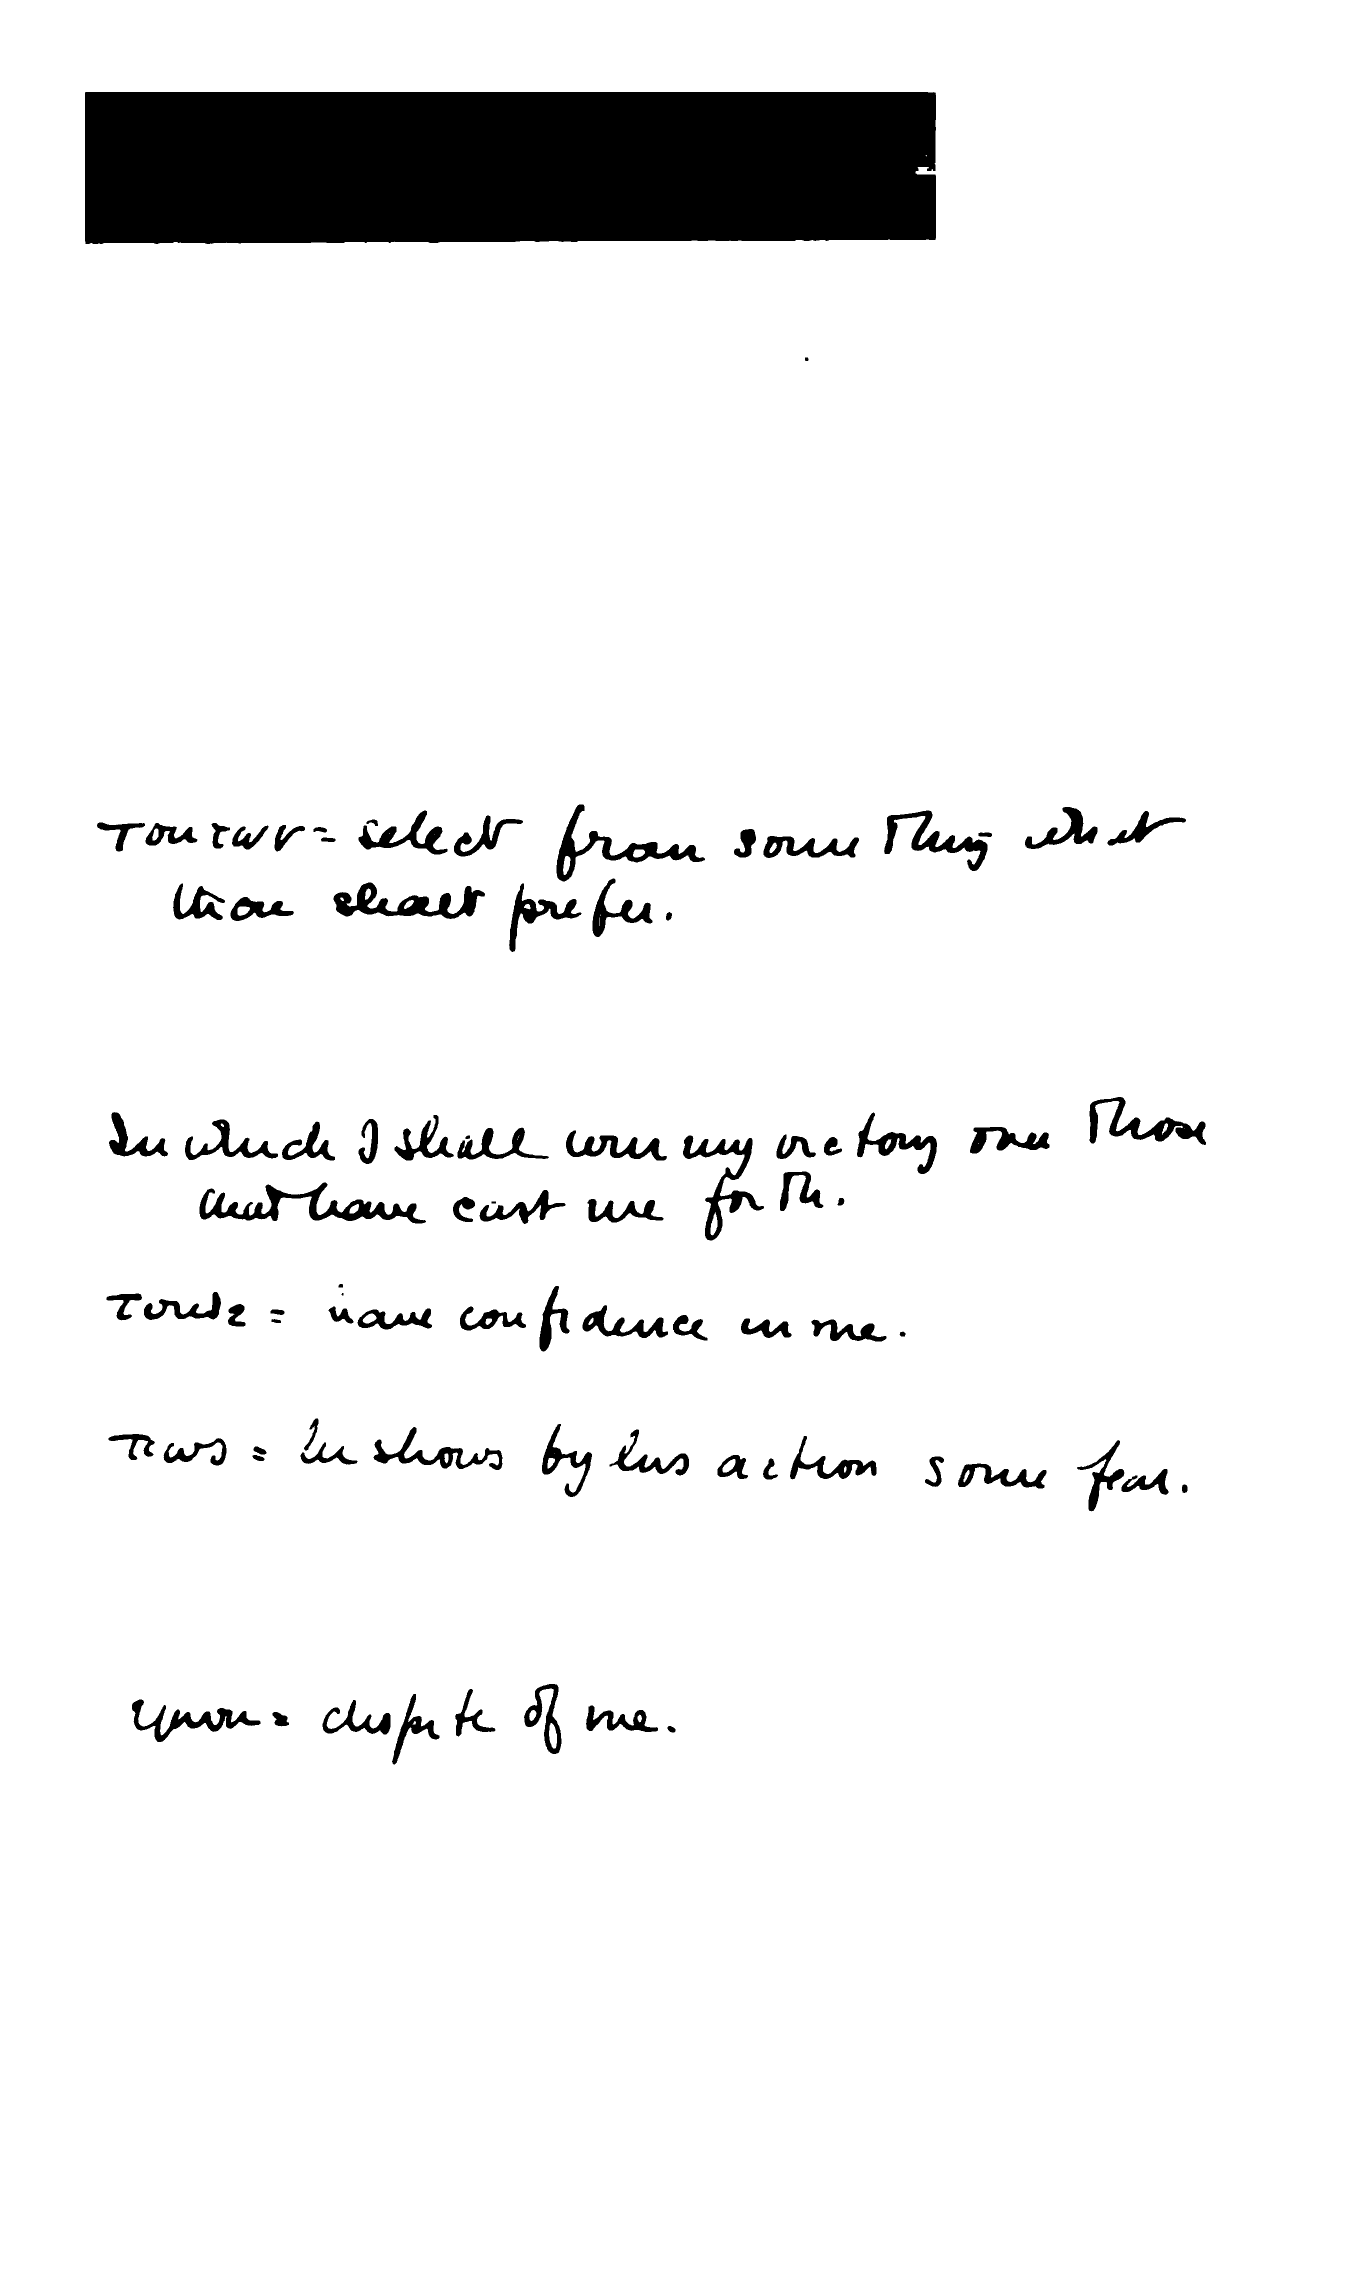 = select from something what
thou shalt prefer.
In which I shall win my victory over those
that have cast me forth.
= have confidence in me.
= he shows by his action some fear.
= dispite of me.